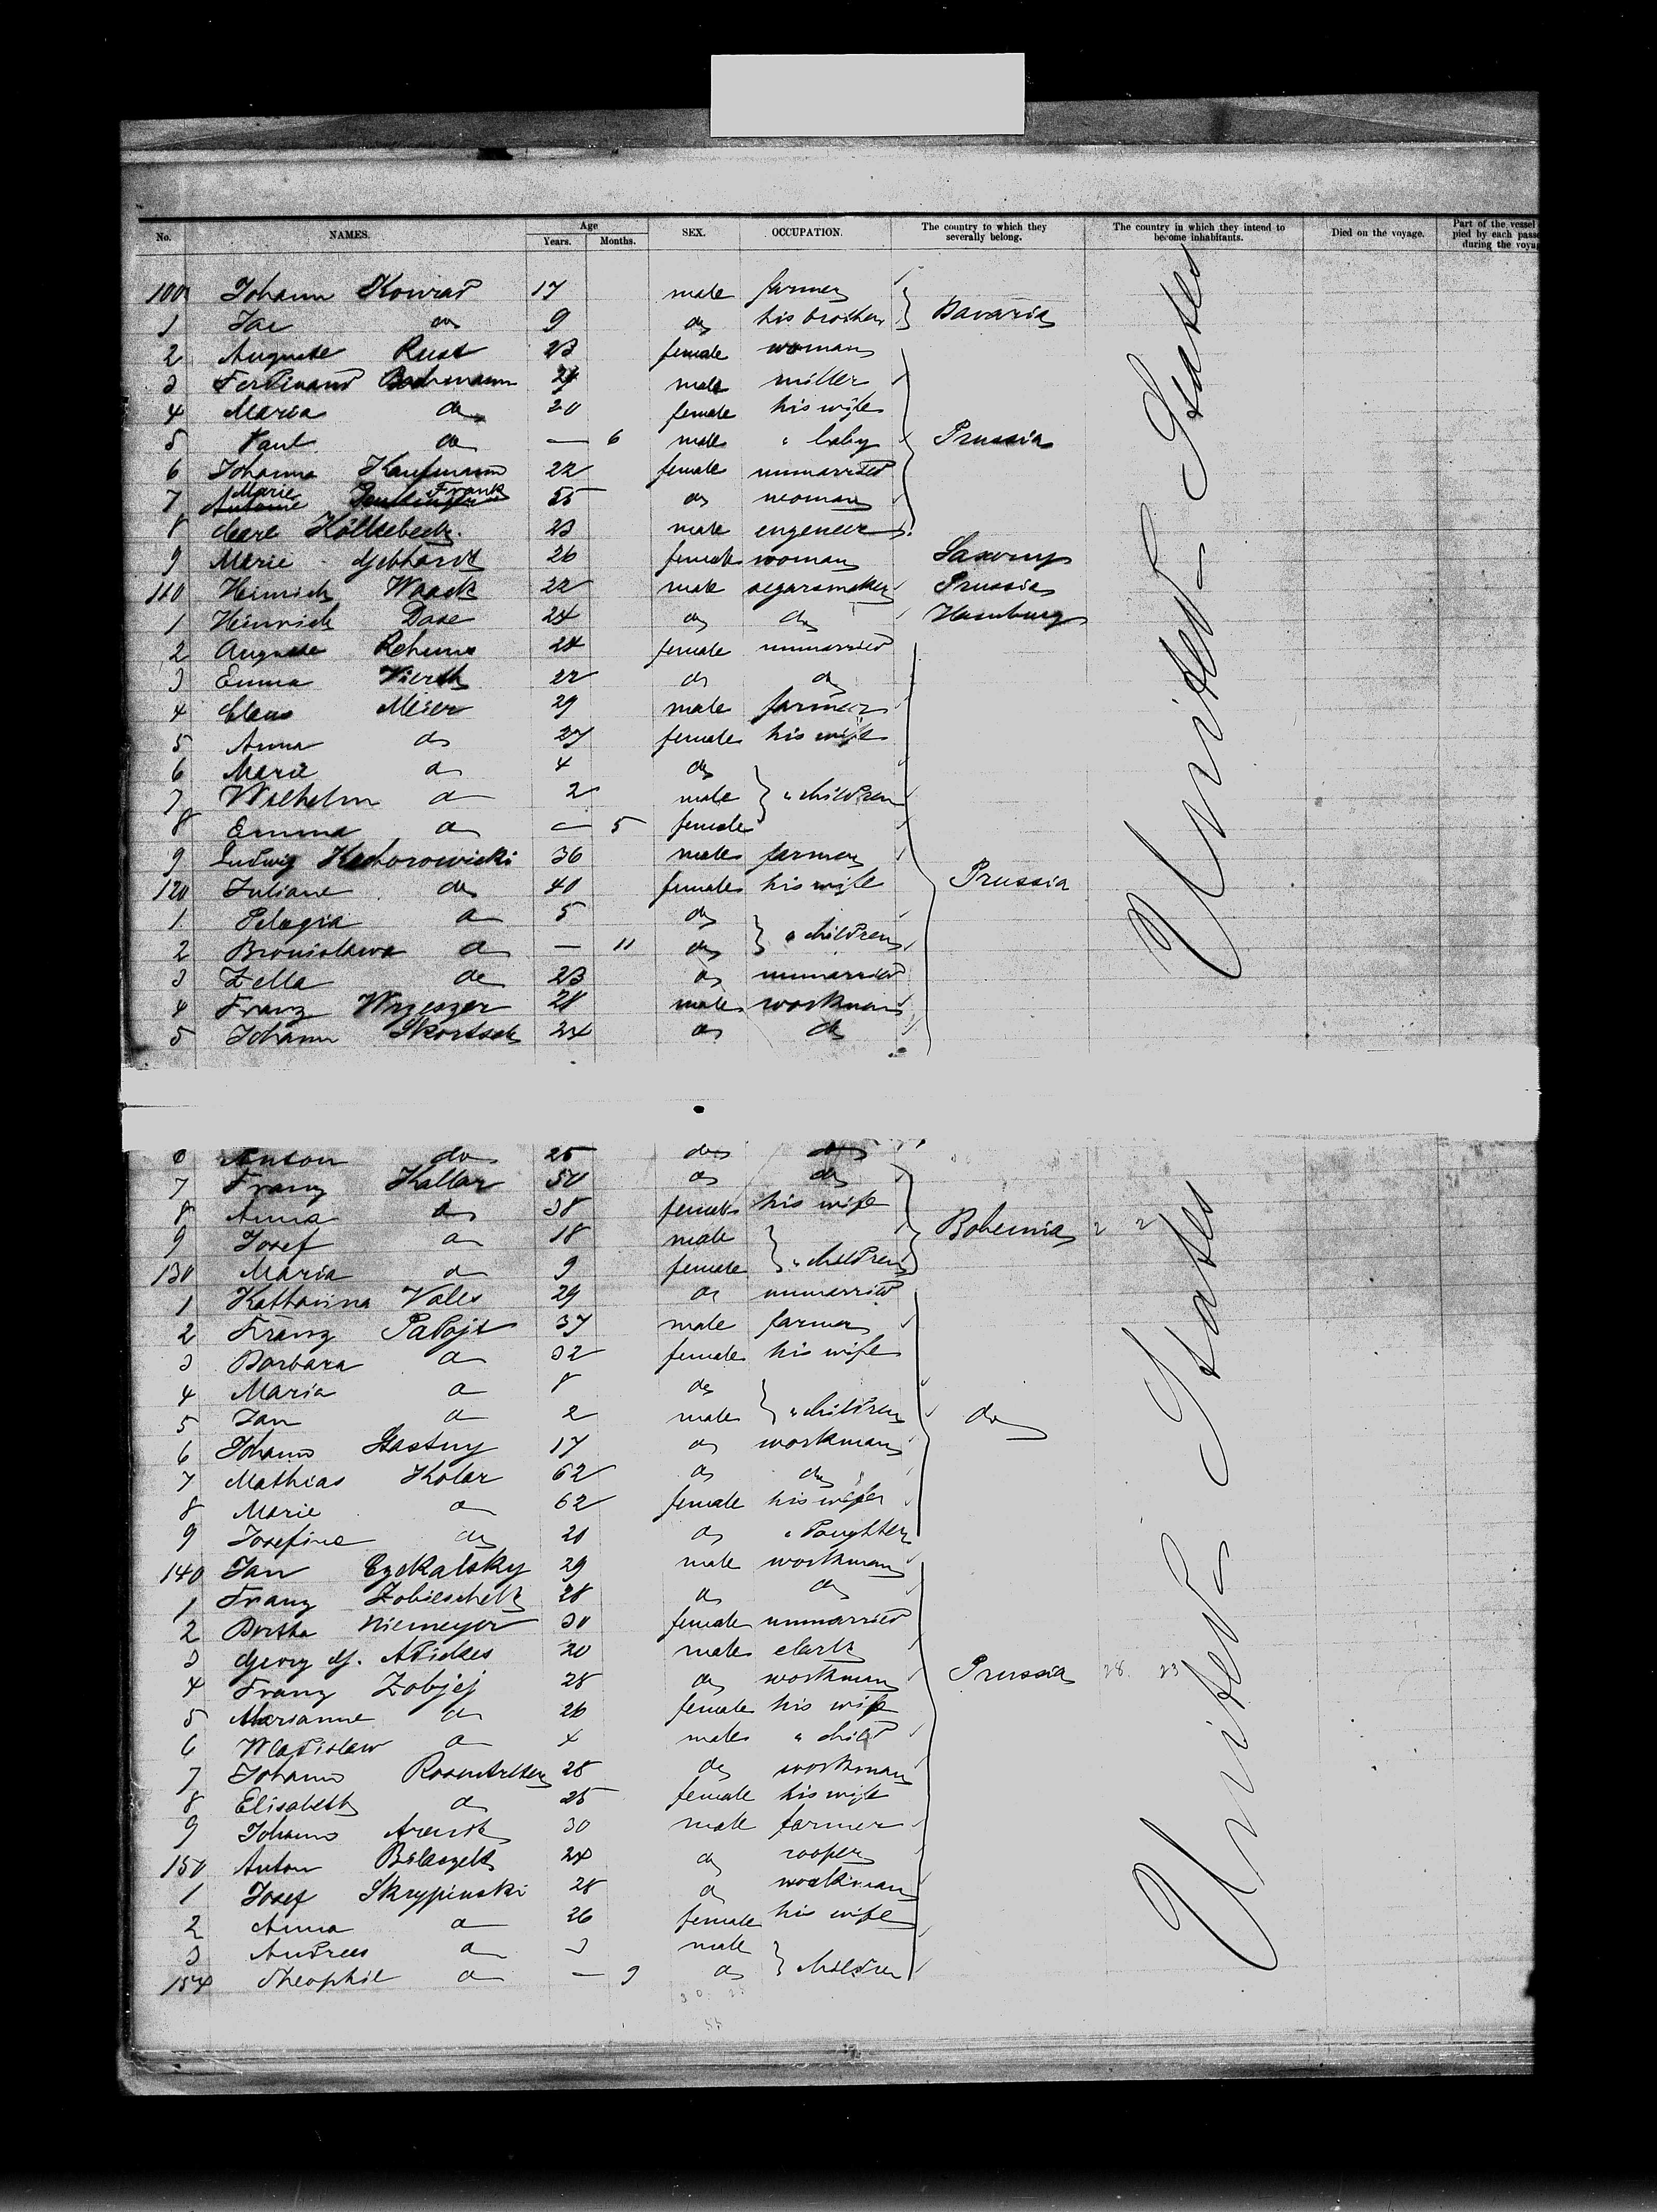 No. NAMES. Age Years. Months. SEX. OCCUPATION. The country to which they severally belong. The country in which they intend to become inhabitants. Died on the voyage. Part of the vessel pied by each pass during the voya
100 Johann Konrad 17 male farmer
1 do 9 do his brother Bavaria
2 Auguste Rust 23 female woman
3 Ferdinand 24 male miller
4 Maria do 20 female his wife
5 Paul do — 6 male " baby Prussia
6 Johanna Kaufmann 22 female unmarried
7 Marie Frank 55 do woman
8 Carl 23 male engeneer
9 Marie Gebhardt 26 female woman Saxony
110 Heinrich Waack 22 male segarsmaker Prussia
1 Heinrich Dase 24 do do Hamburg
2 Auguste 24 female unmarried
3 Emma Vierth 22 do do
4 Claus Meier 29 male farmer
5 Anna do 27 female his wife
6 Marie do 4 do
7 Wilhelm do 2 male " children
8 Emma do — 5 female
9 Ludwig 36 male farmer
120 Juliane do 40 female his wife Prussia
1 Pelagia do 5 do
2 Bronislawa do — 11 do " children
3 Zella do 23 do unmarried
4 Franz 28 male workman
5 Johann 24 do do
United States
6 Anton do 25 do do
7 Franz Kollar 50 do do
8 Anna do 38 female his wife
9 Josef do 18 male Bohemia 2 2
130 Maria do 9 female " children
1 Katharina Vales 29 do unmarried
2 Franz 37 male farmer
3 Barbara do 32 female his wife
4 Maria do 8 do
5 Jan do 2 male " children do
6 Johann 17 do workman
7 Mathias Kolar 62 do do
8 Marie do 62 female his wife
9 Josefine do 20 do " daughter
140 Jan 29 male workman
1 Franz 28 do do
2 Bertha Niemeyer 30 female unmarried
3 Georg G. Adickes 20 male clark
4 Franz Zobjej 28 do workman Prussia 28 23
5 Marianne do 26 female his wife
6 Wladislaw do 4 male " child
7 Johann 28 do workman
8 Elisabeth do 25 female his wife
9 Johann Arendt 30 male farmer
150 Anton 24 do cooper
1 Josef Skrypinski 28 do workman
2 Anna do 26 female his wife
3 Andreas do 3 male
154 Theophil do — 9 do children
United States